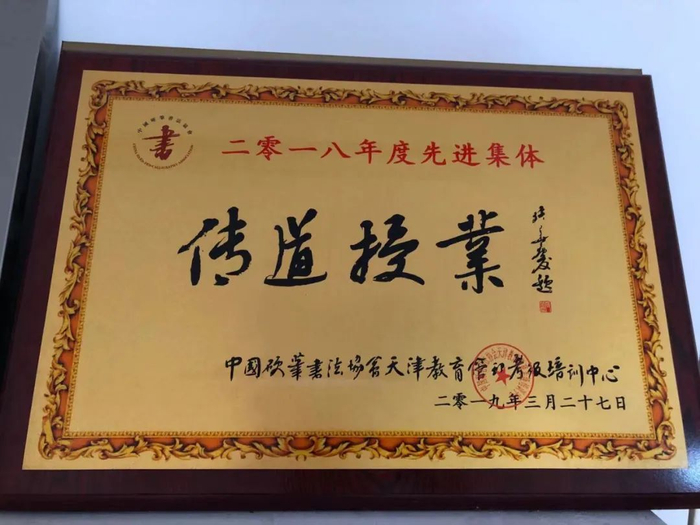 書
二零一八年度先进集体
传道授業
中國硬筆書法協會天津教育信和考级培訓中心
二零一九年三月二十七日